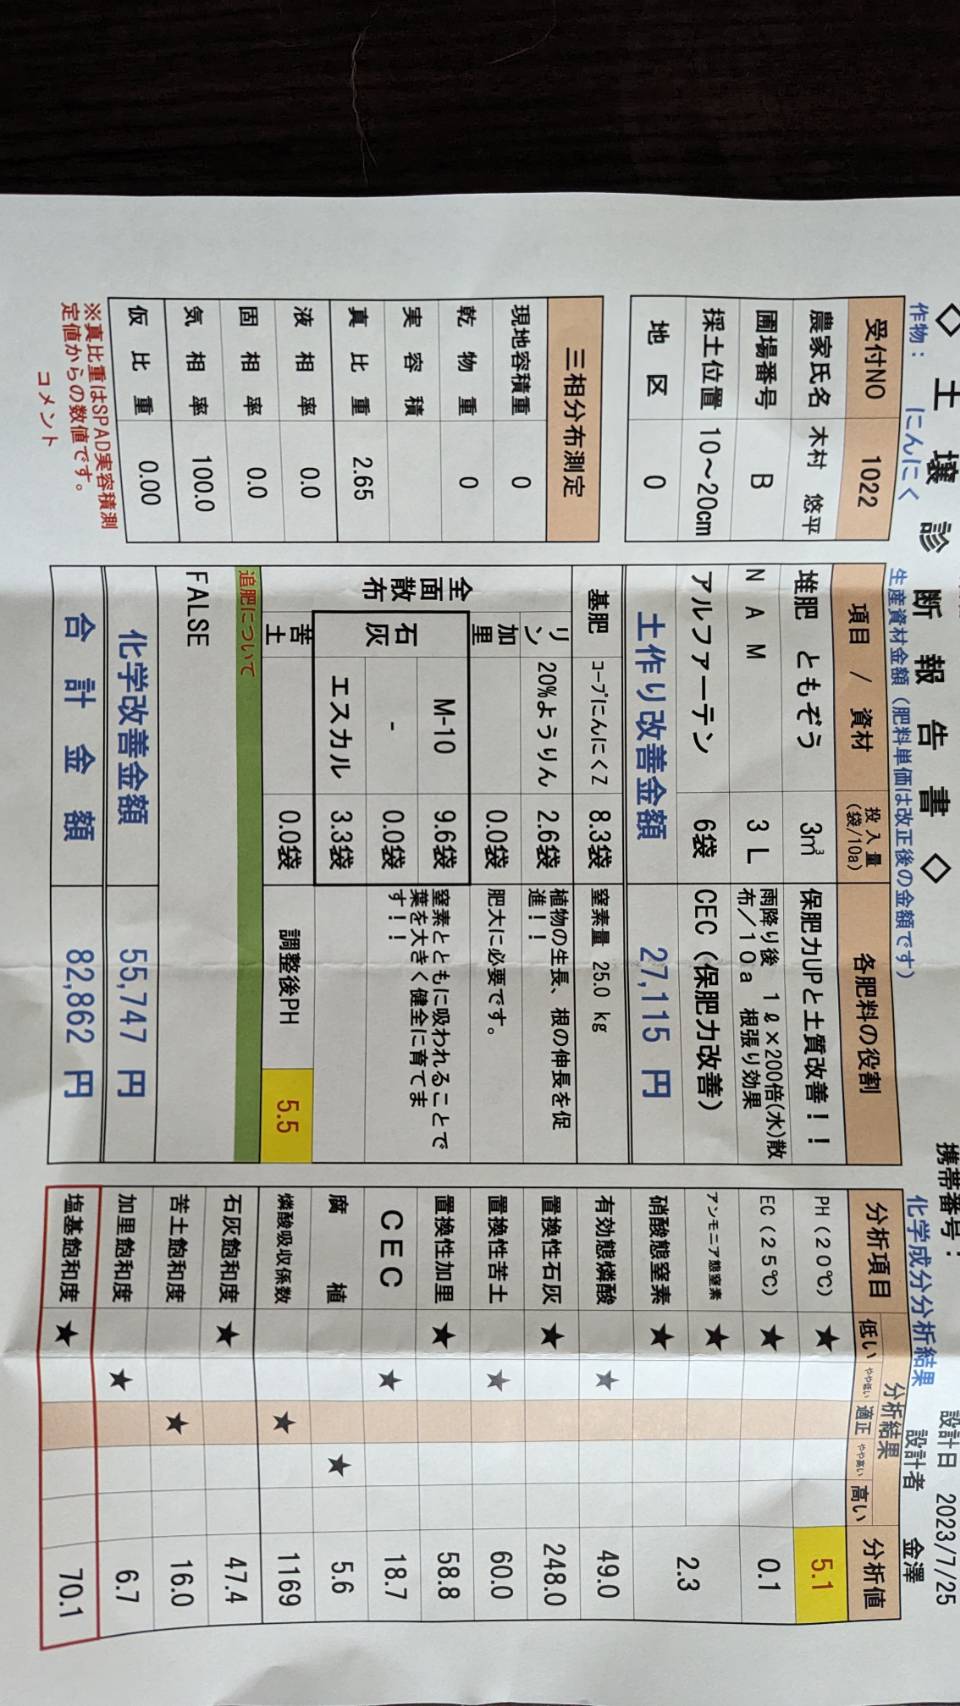 ◇ 土 壌 診 断 報 告 書 ◇
携帯番号：
設計日 2023/7/25
作物： にんにく
生産資材金額（肥料単価は改正後の金額です）
化学成分分析結果
設計者 金澤
受付NO 1022
農家氏名 木村 悠平
圃場番号 B
採土位置 10～20cm
地 区 0
三相分布測定
現地容積重 0
乾 物 重 0
実 容 積
真 比 重 2.65
液 相 率 0.0
固 相 率 0.0
気 相 率 100.0
仮 比 重 0.00
※真比重はSPAD実容積測
定値からの数値です。
コメント
項目 / 資材 投入量（袋/10a） 各肥料の役割
堆肥 ともぞう 3㎥ 保肥力UPと土質改善！！
N A M 3 L 雨降り後 1ℓ×200倍(水)散
布／10a 根張り効果
アルファーテン 6袋 CEC（保肥力改善）
土作り改善金額 27,115 円
基肥 コープにんにくZ 8.3袋 窒素量 25.0 kg
全面散布
リン 20%ようりん 2.6袋 植物の生長、根の伸長を促
進！！
加里 0.0袋 肥大に必要です。
石灰 M-10 9.6袋 窒素とともに吸われることで
葉を大きく健全に育てま
す！！
- 0.0袋
エスカル 3.3袋
苦土 0.0袋 調整後PH 5.5
追肥について
FALSE
化学改善金額 55,747 円
合 計 金 額 82,862 円
分析項目 分析結果 分析値
低い やや低い 適正 やや高い 高い
PH（20℃） ★ 5.1
EC（25℃） ★ 0.1
アンモニア態窒素 ★
硝酸態窒素 ★ 2.3
有効態燐酸 ★ 49.0
置換性石灰 ★ 248.0
置換性苦土 ★ 60.0
置換性加里 ★ 58.8
CEC ★ 18.7
腐 植 ★ 5.6
燐酸吸収係数 ★ 1169
石灰飽和度 ★ 47.4
苦土飽和度 ★ 16.0
加里飽和度 ★ 6.7
塩基飽和度 ★ 70.1